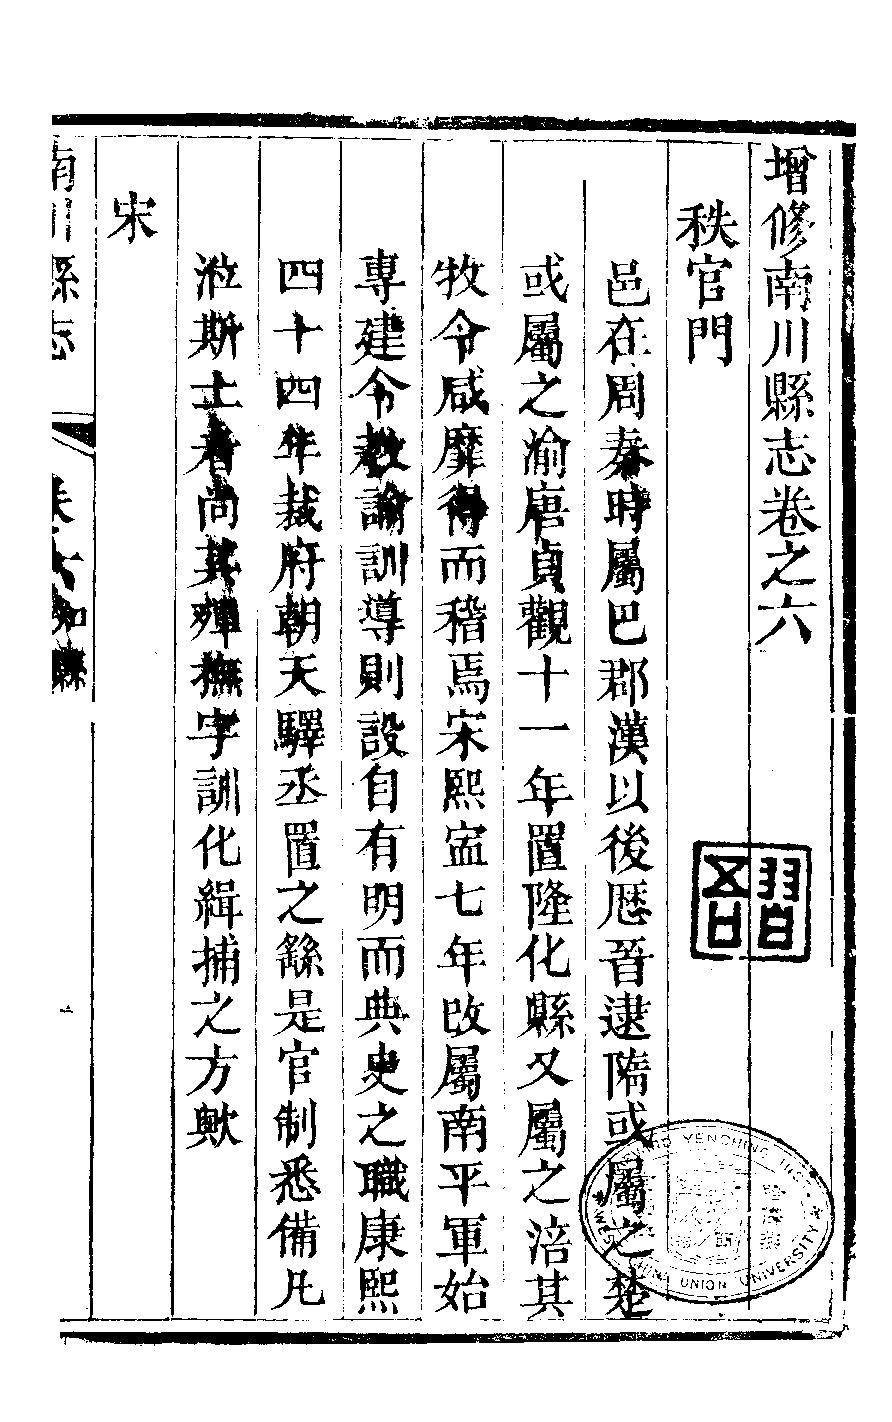 增修南川縣志卷之六
秩官門
邑在周秦時屬巴郡漢以後厯晉逮隋或屬之楚
或屬之渝唐貞觀十一年置隆化縣又屬之涪其
牧令咸靡得而稽焉宋熙寍七年改屬南平軍始
專建令教諭訓導則設自有明而典史之職康熙
四十四年裁府朝天驛丞置之繇是官制悉備凡
涖斯土者尚其殫撫字訓化緝捕之方歟
宋
南川縣志
卷六 知縣
YENCHING
CHINA UNION UNIVERSITY